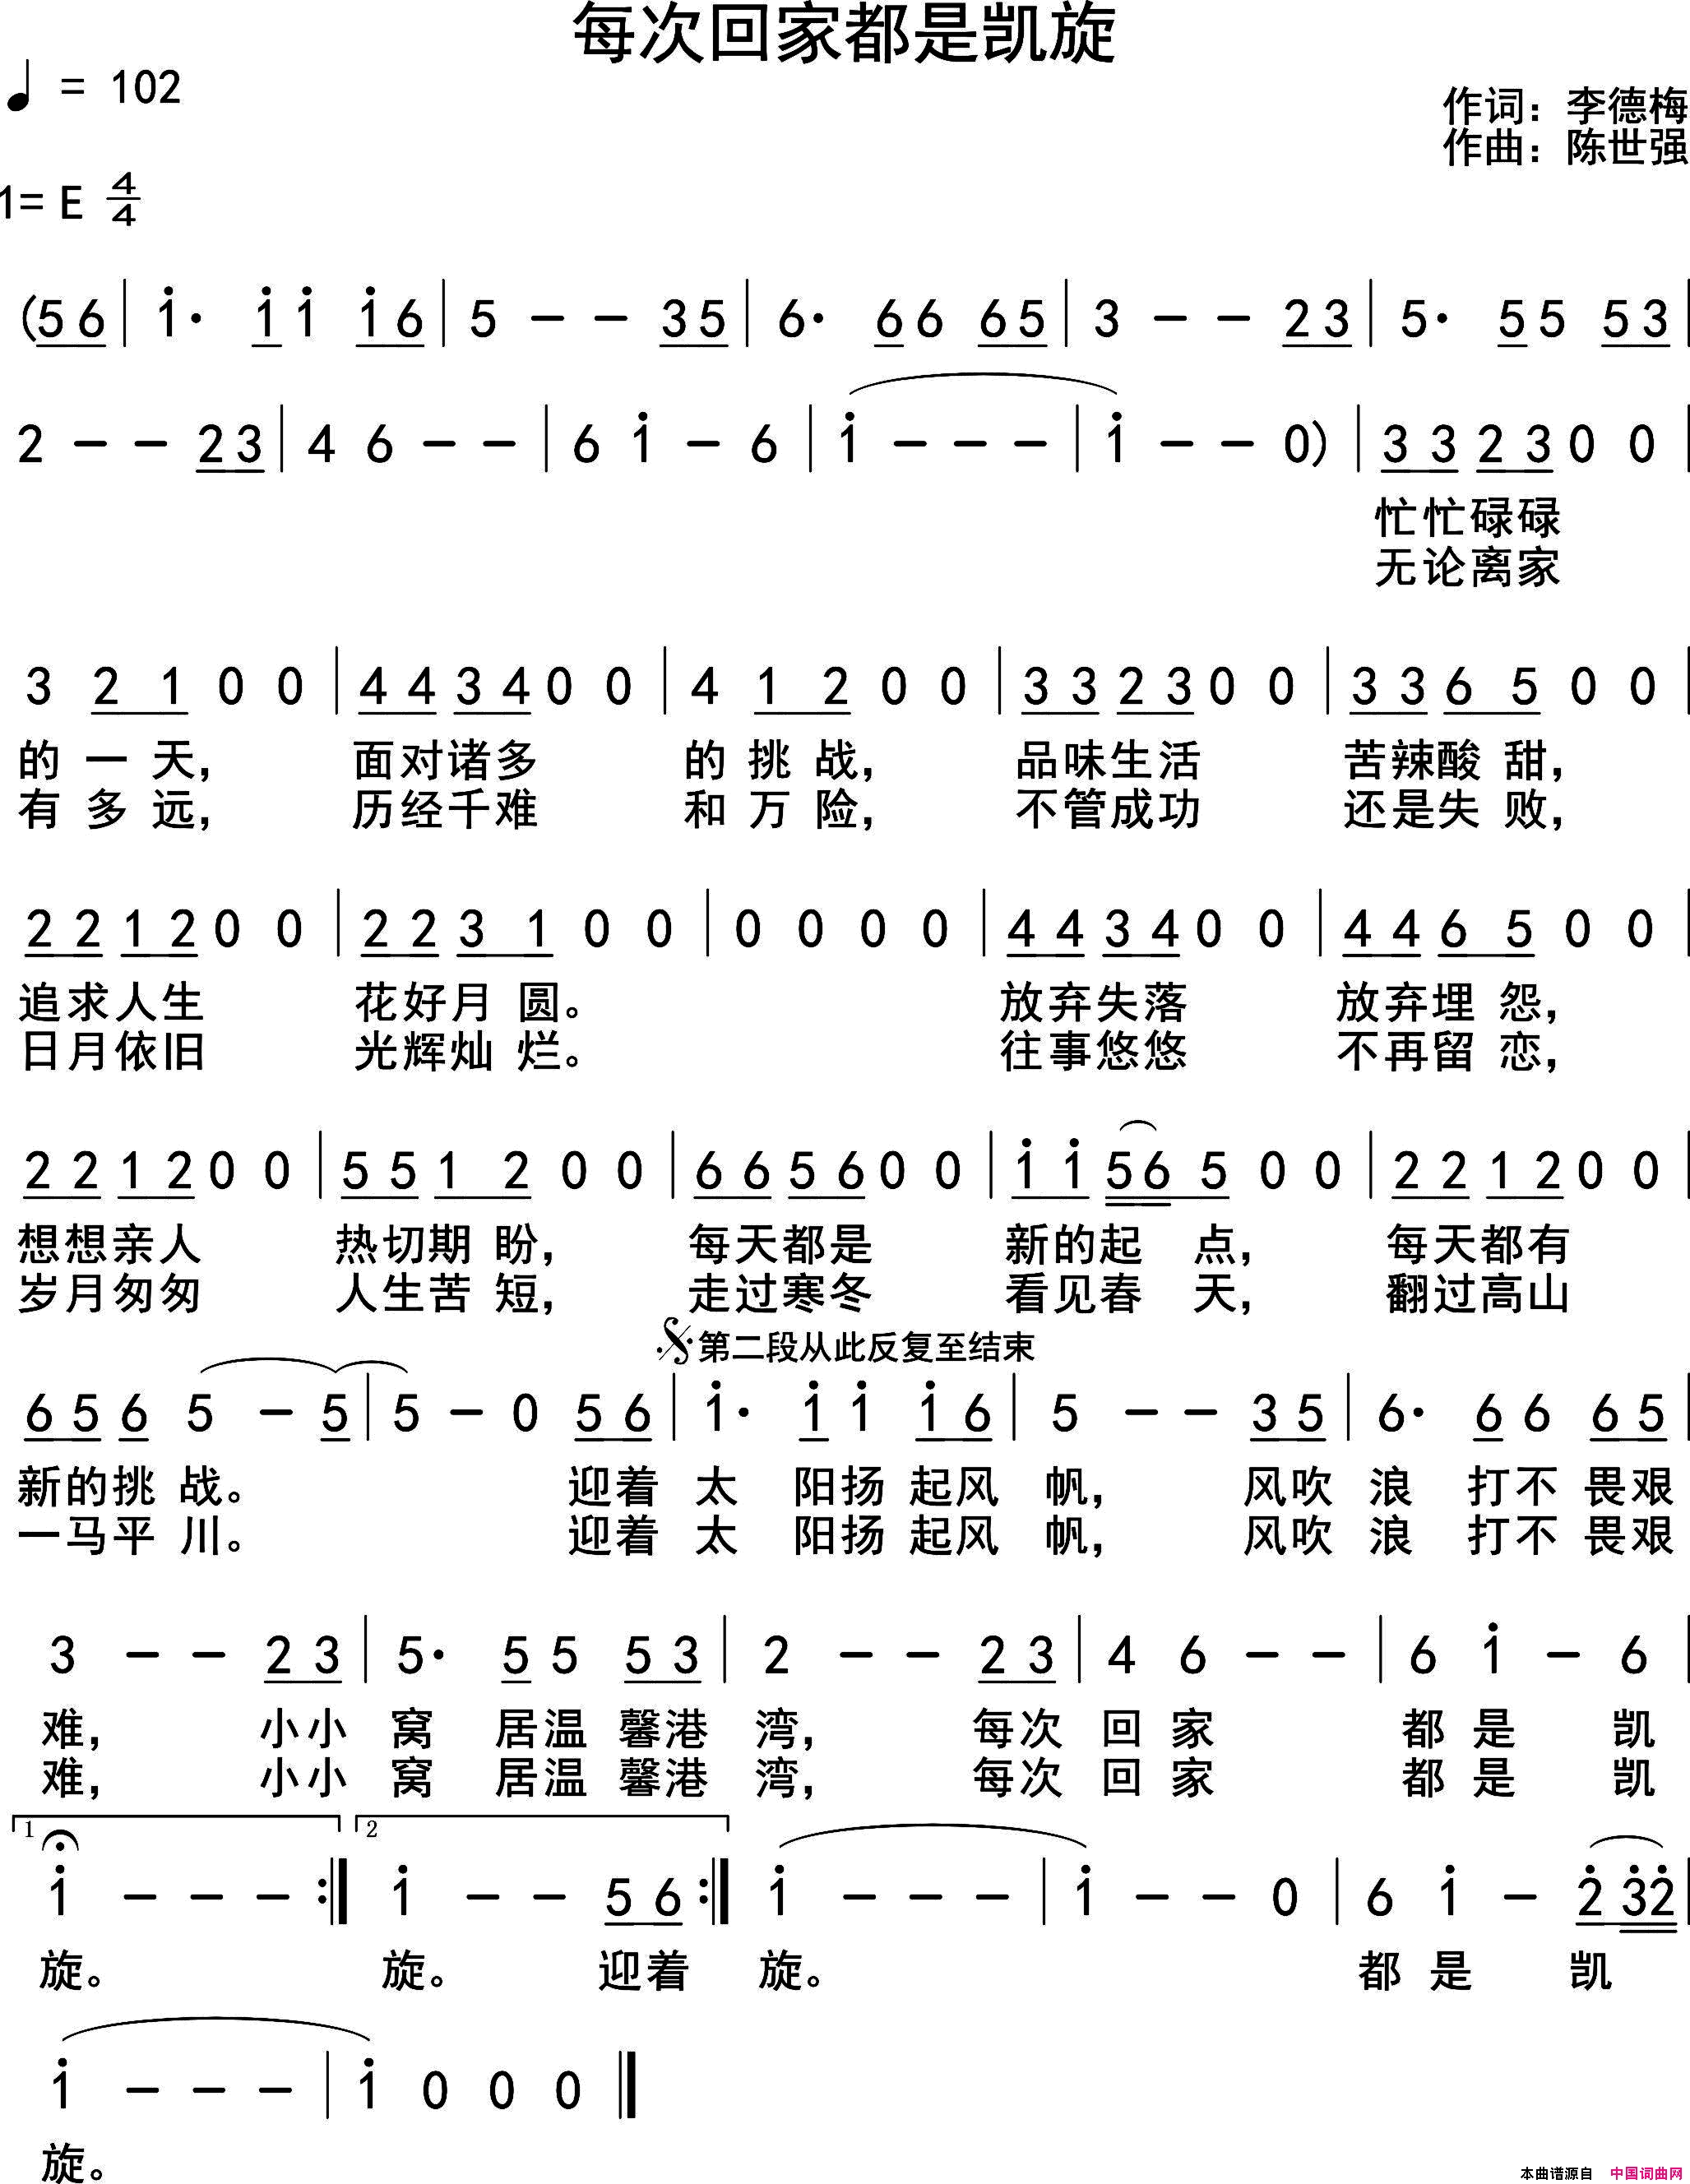 每次回家都是凯旋
♩ = 102
作词：李德梅
作曲：陈世强
1= E 4/4
(5 6 | i· i i i 6 | 5 – – 3 5 | 6· 6 6 6 5 | 3 – – 2 3 | 5· 5 5 5 3 |
2 – – 2 3 | 4 6 – – | 6 i – 6 | i – – – | i – – 0) | 3 3 2 3 0 0 |
忙忙碌碌
无论离家
3 2 1 0 0 | 4 4 3 4 0 0 | 4 1 2 0 0 | 3 3 2 3 0 0 | 3 3 6 5 0 0 |
的一天， 面对诸多 的挑战， 品味生活 苦辣酸甜，
有多远， 历经千难 和万险， 不管成功 还是失败，
2 2 1 2 0 0 | 2 2 3 1 0 0 | 0 0 0 0 | 4 4 3 4 0 0 | 4 4 6 5 0 0 |
追求人生 花好月圆。 放弃失落 放弃埋怨，
日月依旧 光辉灿烂。 往事悠悠 不再留恋，
2 2 1 2 0 0 | 5 5 1 2 0 0 | 6 6 5 6 0 0 | i i 5 6 5 0 0 | 2 2 1 2 0 0 |
想想亲人 热切期盼， 每天都是 新的起点， 每天都有
岁月匆匆 人生苦短， 走过寒冬 看见春天， 翻过高山
第二段从此反复至结束
6 5 6 5 – 5 | 5 – 0 5 6 | i· i i i 6 | 5 – – 3 5 | 6· 6 6 6 5
新的挑战。 迎着太 阳扬起风帆， 风吹浪 打不畏艰
一马平川。 迎着太 阳扬起风帆， 风吹浪 打不畏艰
3 – – 2 3 | 5· 5 5 5 3 | 2 – – 2 3 | 4 6 – – | 6 i – 6 |
难， 小小窝 居温馨港湾， 每次回家 都是凯
难， 小小窝 居温馨港湾， 每次回家 都是凯
1 2
i – – – :| i – – 5 6 :| i – – – | i – – 0 | 6 i – 2 3 2 |
旋。 旋。 迎着 旋。 都是 凯
i – – – | i 0 0 0 ‖
旋。
本曲谱源自 中国词曲网